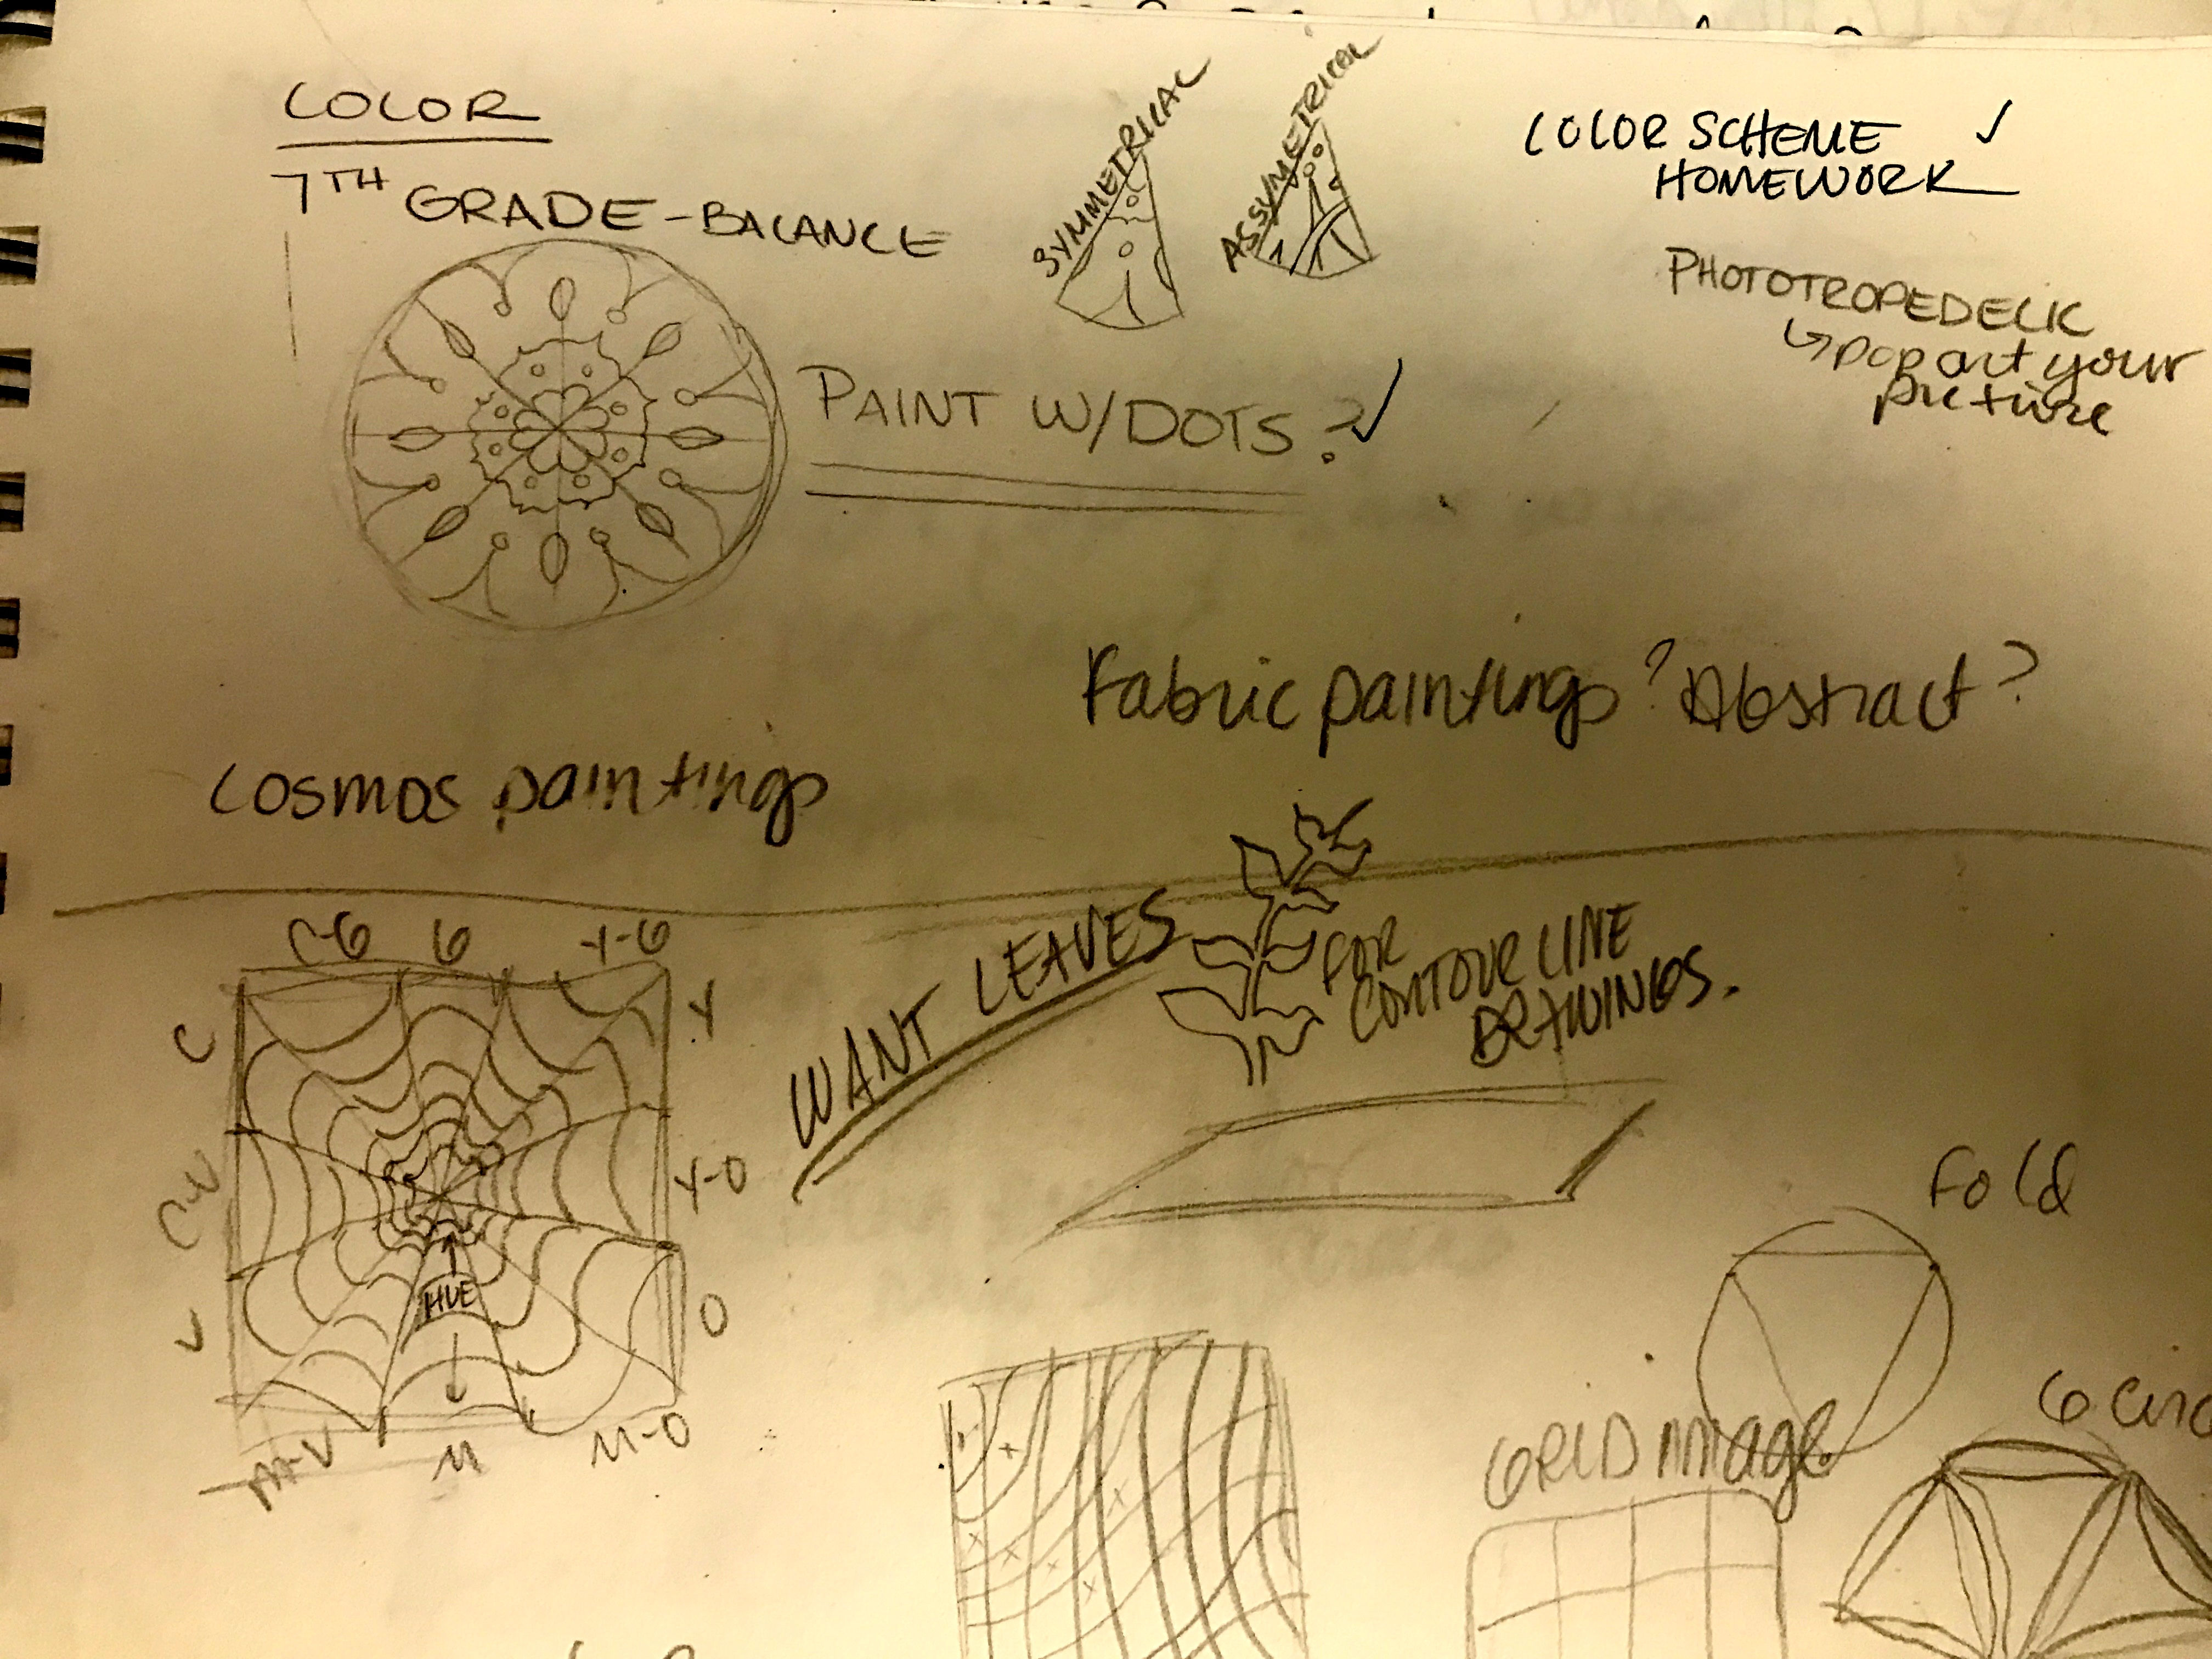 COLOR
7TH GRADE - BALANCE
SYMMETRICAL
ASSYMETRICAL
COLOR SCHEME ✓
HOMEWORK
PHOTOTROPEDELIC
↳ pop art your
picture
PAINT W/DOTS? ✓
Fabric paintings? Abstract?
Cosmos paintings
WANT LEAVES
FOR
CONTOUR LINE
DRAWINGS.
C-G G Y-G
C
Y
C-V
Y-O
HUE
V
O
M-V M M-O
Fold
GRID image
6